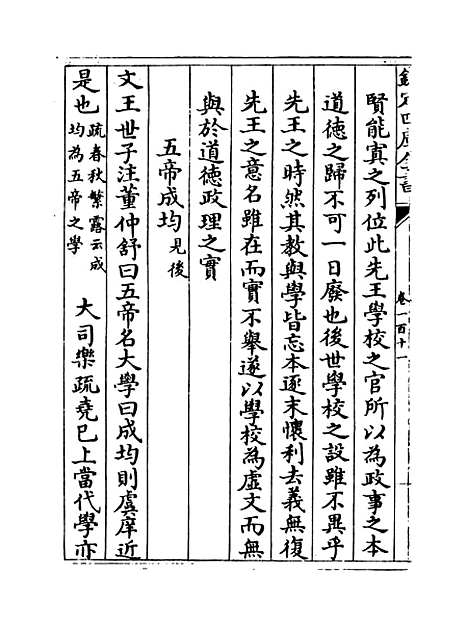 欽定四庫全書
卷一百十一
賢能寘之列位此先王學校之官所以為政事之本
道德之歸不可一日廢也後世學校之設雖不異乎
先王之時然其教與學皆忘本逐末懷利去義無復
先王之意名雖在而實不舉遂以學校為虛文而無
與於道德政理之實
五帝成均見後
文王世子注董仲舒曰五帝名大學曰成均則虞庠近
是也疏春秋繁露云成均為五帝之學 大司樂疏堯已上當代學亦